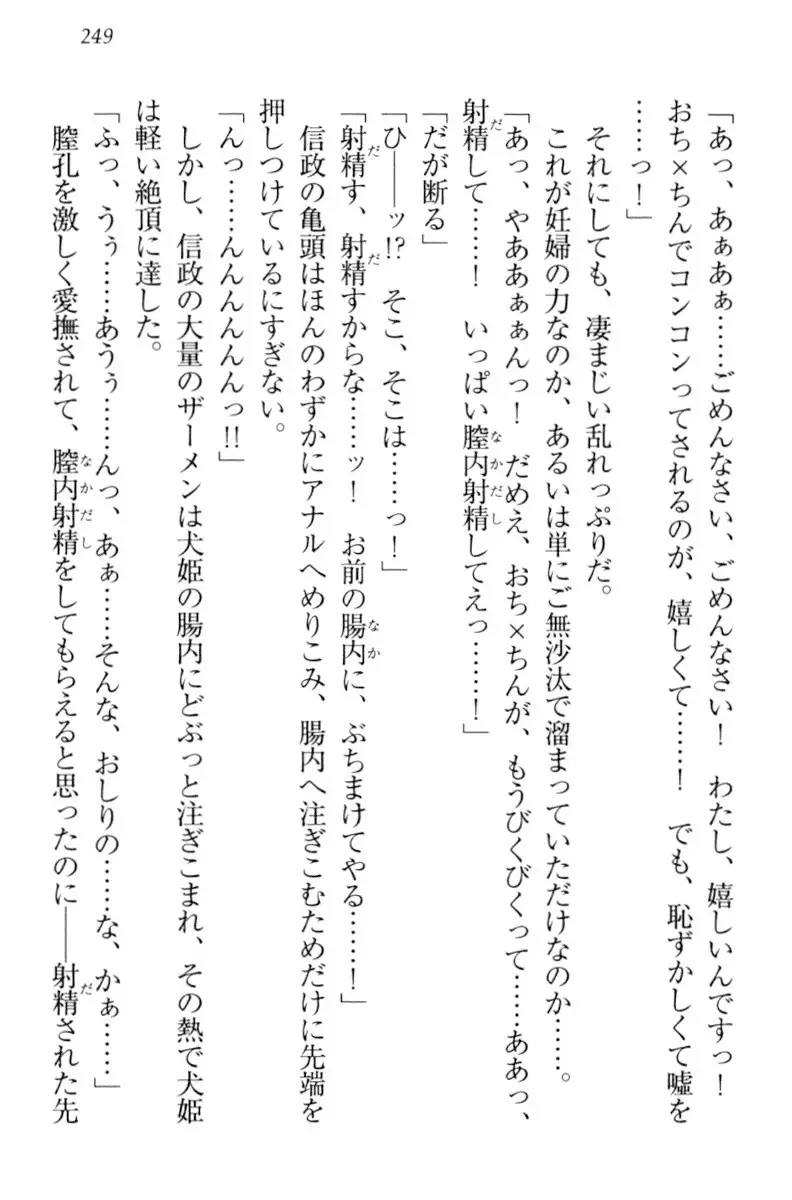 249
「あっ、あぁあぁ……ごめんなさい、ごめんなさい！　わたし、嬉しいんですっ！
おち×ちんでコンコンってされるのが、嬉しくて……！　でも、恥ずかしくて嘘を
……っ！」
それにしても、凄まじい乱れっぷりだ。
これが妊婦の力なのか、あるいは単にご無沙汰で溜まっていただけなのか……。
「あっ、やああぁぁんっ！　だめえ、おち×ちんが、もうびくびくって……ああっ、
射精して……！　いっぱい膣内射精してえっ……！」
「だが断る」
「ひ――ッ!?　そこ、そこは……っ！」
「射精す、射精すからな……ッ！　お前の腸内に、ぶちまけてやる……！」
信政の亀頭はほんのわずかにアナルへめりこみ、腸内へ注ぎこむためだけに先端を
押しつけているにすぎない。
「んっ……んんんんんんっ!!」
しかし、信政の大量のザーメンは犬姫の腸内にどぶっと注ぎこまれ、その熱で犬姫
は軽い絶頂に達した。
「ふっ、うぅ……あうぅ……んっ、あぁ……そんな、おしりの……な、かぁ……」
膣孔を激しく愛撫されて、膣内射精をしてもらえると思ったのに――射精された先